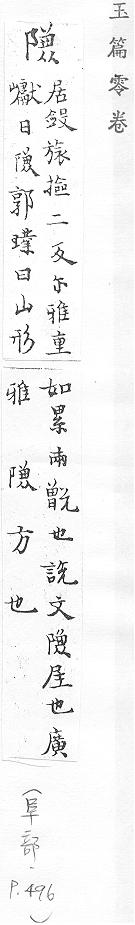 玉篇零卷
隒
居旅撿二反尓雅重
巘曰隒郭璞曰山形
如累兩甑也說文隒厓也廣
雅隒方也
(阜部, P.496)